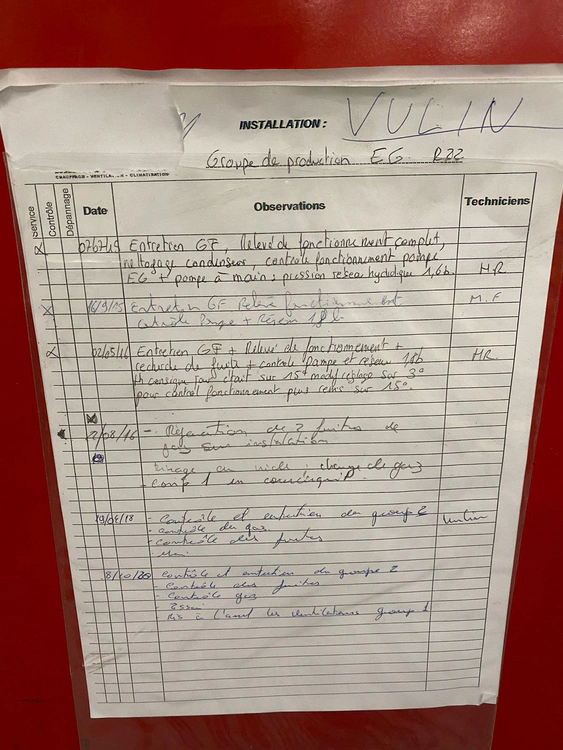 INSTALLATION : VULIN
Groupe de production EG R22
CHAUFFAGE - VENTILATION - CLIMATISATION
Service Contrôle Dépannage Date Observations Techniciens
X Entretien GF, Relevé de fonctionnement complet,
nettoyage condenseur, controle fonctionnement pompe
EG + pompe à main : pression reseau hydolique 1,6b. M.R
X 16/9/15 Entretien GF Relevé fonctionnement M.F
controle Pompe + Réseau
X 02/05/16 Entretien GF + Relevé de fonctionnement + MR
recherche de fuite + controle Pompe et reseau 1,8b
consigne était sur 15° réglage sur 3°
pour control fonctionnement plus remis sur 15°
/08/16 - Réparation de 2 fuites de
gaz sur installation
tirage au vide : change de gaz
- Comp 1 en
19/04/18 - Contrôle et entretien du groupe 2
- contrôle du gaz
- Contrôle des fuites
8/10/20 - Contrôle et entretien du groupe 2
Contrôle des fuites
Contrôle gaz
Essai
Mis à l'arrêt les ventilateurs groupe 1